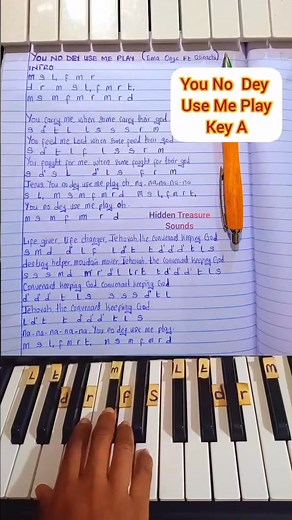 YOU NO DEY USE ME PLAY (Ema Onyx Ft. Osinachi)
INTRO
m s l, f m r
d r m s l, f m r t,
m s m f m r m r d
You carry me when some carry their god
s d' t l l s s s r m
You feed me Lord when some feed their god
s d' t l f l s s r m
You fought for me when some fought for their god
Jesus You no dey use me play oh, na-na-na-na-na
You no dey use me play oh.
m s m f m r d
Life giver, Life changer, Jehovah the convenant keeping God
destiny helper, mountain mover, Jehovah the convenant keeping God
Convenant keeping God convenant keeping God
d' d' d' t l s s s s d' t l
Jehovah the convenant keeping God
L d' t t d' d' d' t l s
na-na-na-na-na. You no dey use me play.
m s l, f m r t, m s m f m r d
You No Dey
Use Me Play
Key A
Hidden Treasure
Sounds
L t m L t m
d r f s d r